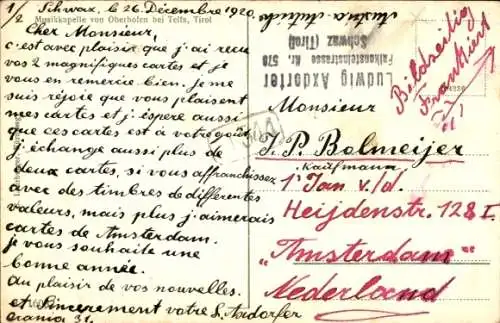 1/2 Schwaz, le 26. Décembre 1920.
Musikkapelle von Oberhofen bei Telfs, Tirol
Cher Monsieur,
c'est avec plaisir que j'ai recu
vos 2 magnifiques cartes et je
vous en remercie bien, je me
suis réjoie que vous plaisent
mes cartes et j'espère aussi
que ces cartes est à votre goût
j'échange aussi plus de
deux cartes, si vous affranchissez
avec des timbres de differentes
valeurs, mais plus j'aimerais
cartes de Amsterdam.
je vous souhaite une
bonne année.
Au plaisir de vos nouvelles
et sincerement votre L. Axdorfer
Austria
Ludwig Axdorfer
Falkensteinstrasse Nr. 578
Schwaz (Tirol)
Bildseitig
Frankiert
!!
Monsieur
J. P. Bolmeijer
Kaufmann
1e Jan v./d.
Heijdenstr. 128 I.
"Amsterdam"
Nederland